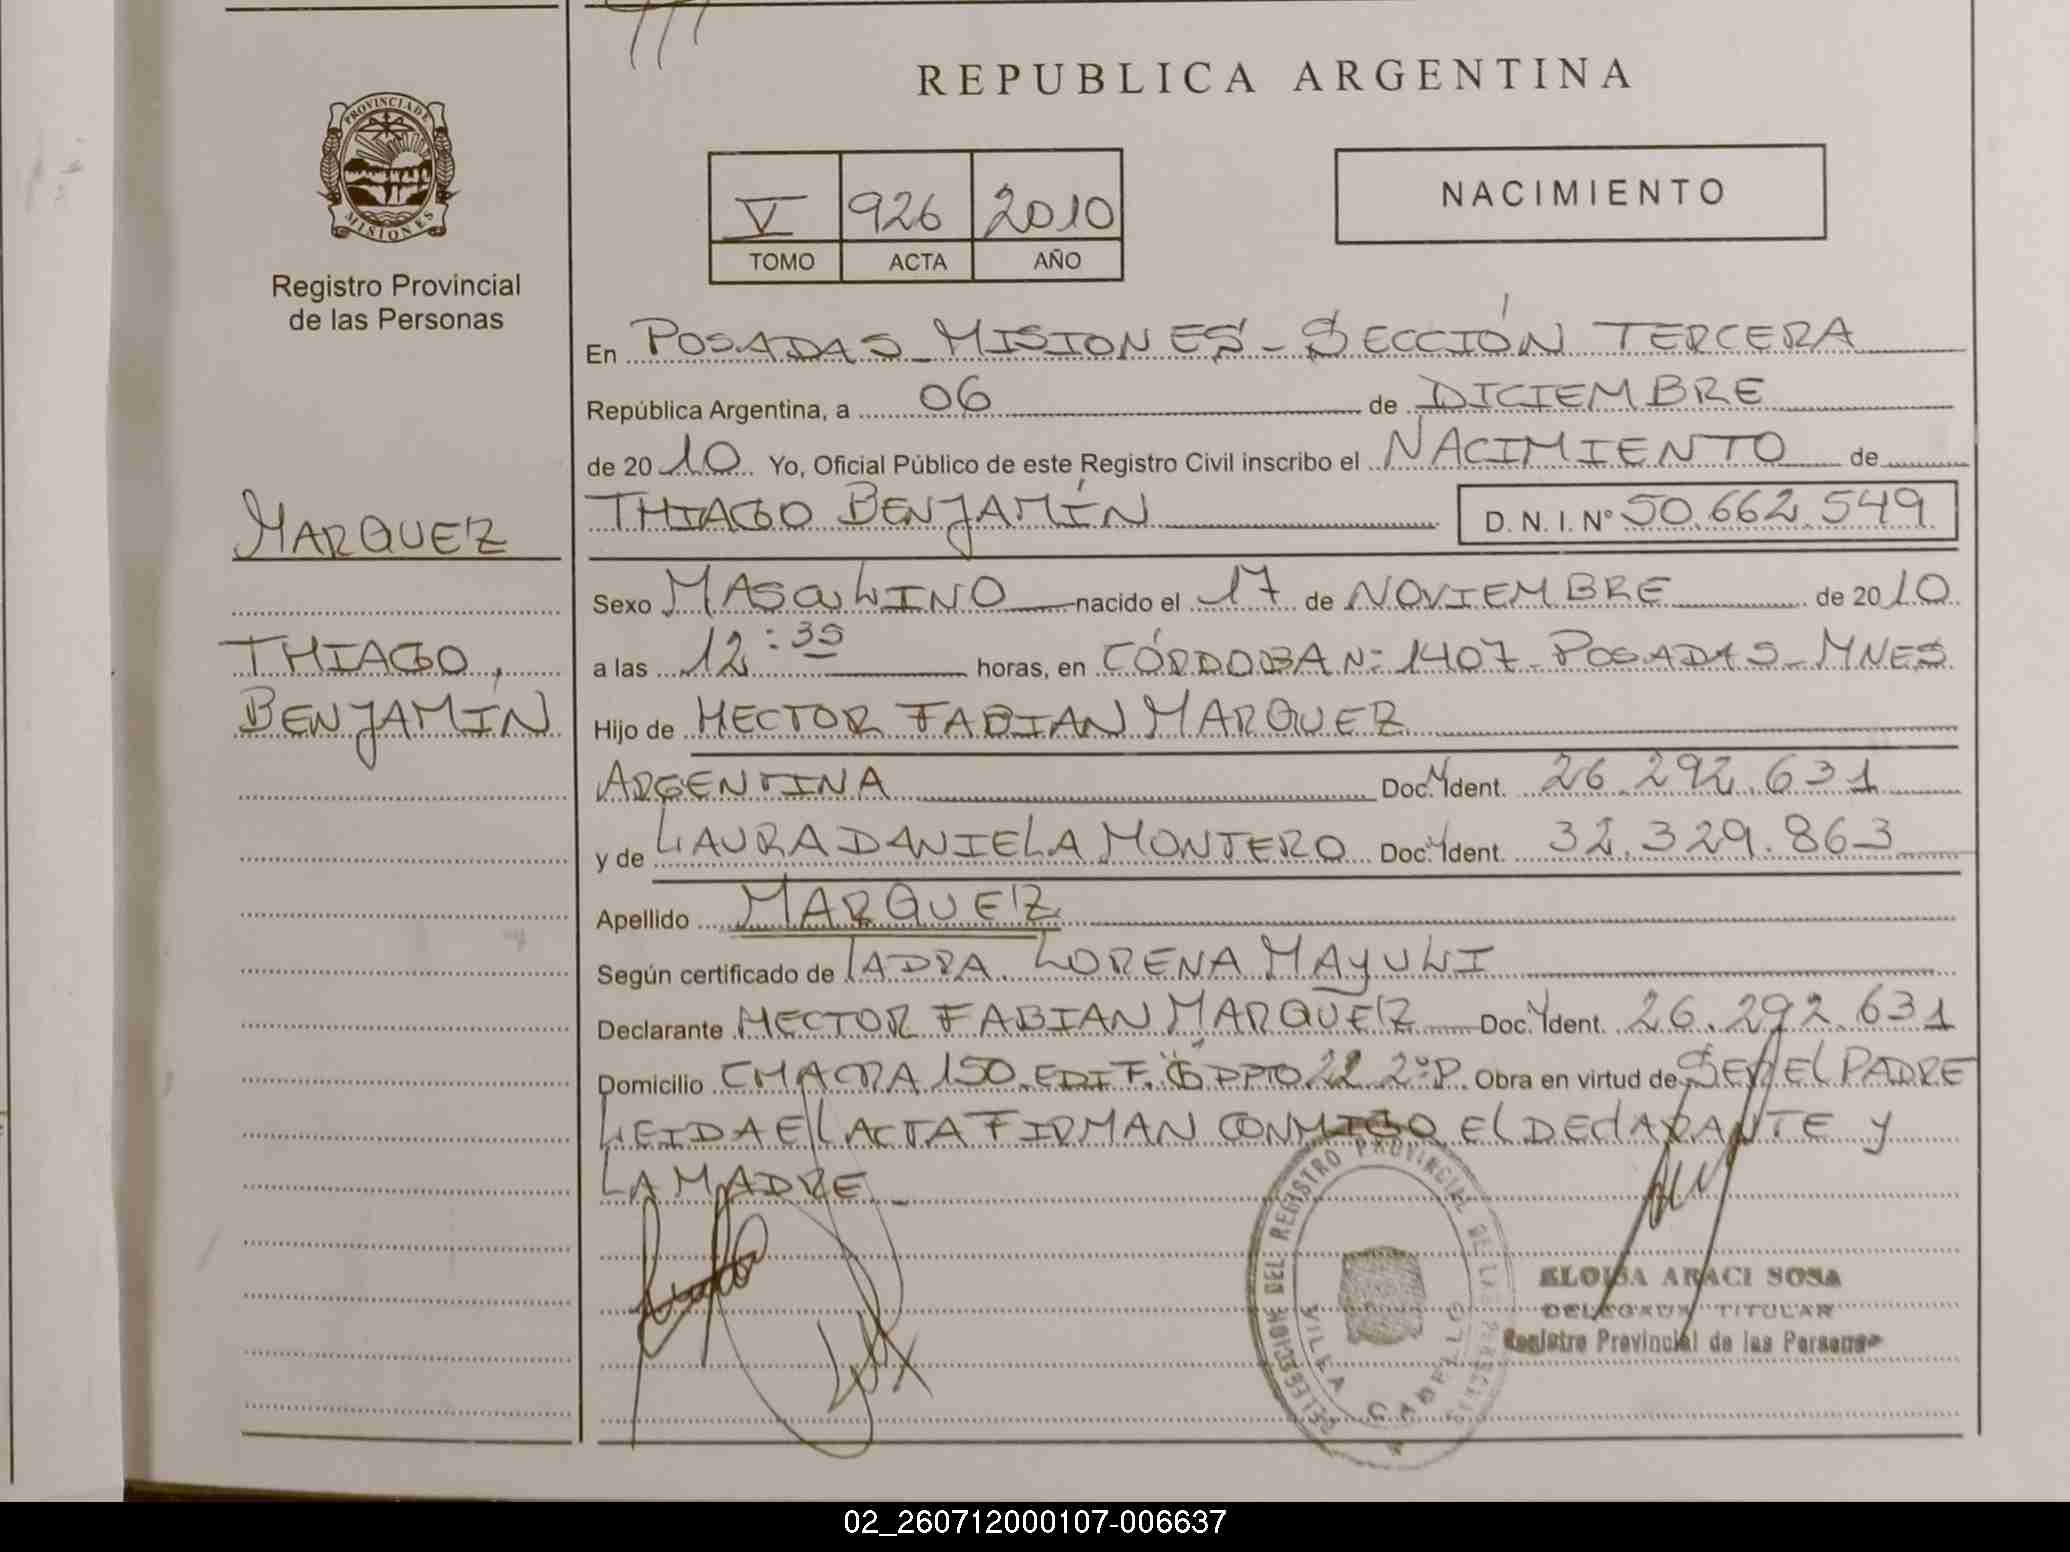 REPUBLICA ARGENTINA
PROVINCIA DE
MISIONES
Registro Provincial
de las Personas
V 926 2010
TOMO ACTA AÑO
NACIMIENTO
En POSADAS - MISIONES - SECCIÓN TERCERA
República Argentina, a 06 de DICIEMBRE
de 2010 Yo, Oficial Público de este Registro Civil inscribo el NACIMIENTO de
THIAGO BENJAMÍN D. N. I. Nº 50.662.549
MARQUEZ
THIAGO,
BENJAMÍN
Sexo MASCULINO nacido el 17 de NOVIEMBRE de 2010
a las 12:35 horas, en CÓRDOBA Nº 1407 - POSADAS - MNES
Hijo de HECTOR FABIAN MARQUEZ
ARGENTINA Doc. Ident. 26.292.631
y de LAURA DANIELA MONTERO Doc. Ident. 32.329.863
Apellido MARQUEZ
Según certificado de LORENA MAYULI
Declarante HECTOR FABIAN MARQUEZ Doc. Ident. 26.292.631
Domicilio CHACRA 150 EDIF. DPTO 22 2º P. Obra en virtud de SER EL PADRE
LEIDA EL ACTA FIRMAN CONMIGO EL DECLARANTE Y
LA MADRE -
DELEGACION DEL REGISTRO PROVINCIAL DE LAS PERSONAS
VILLA CABELLO
ELOISA ARACI SOSA
DELEGADA TITULAR
Registro Provincial de las Personas
02_260712000107-006637